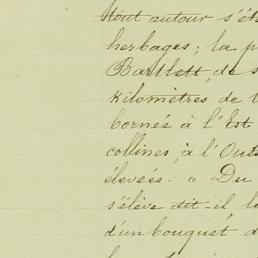 tout autour s'ét
herbages; la p
Bartlett, de s
kilomètres de l
borneé à l'Est
collines, à l'Oue
élevées. " Du
s'élève dit-il l
d'un bouquet d